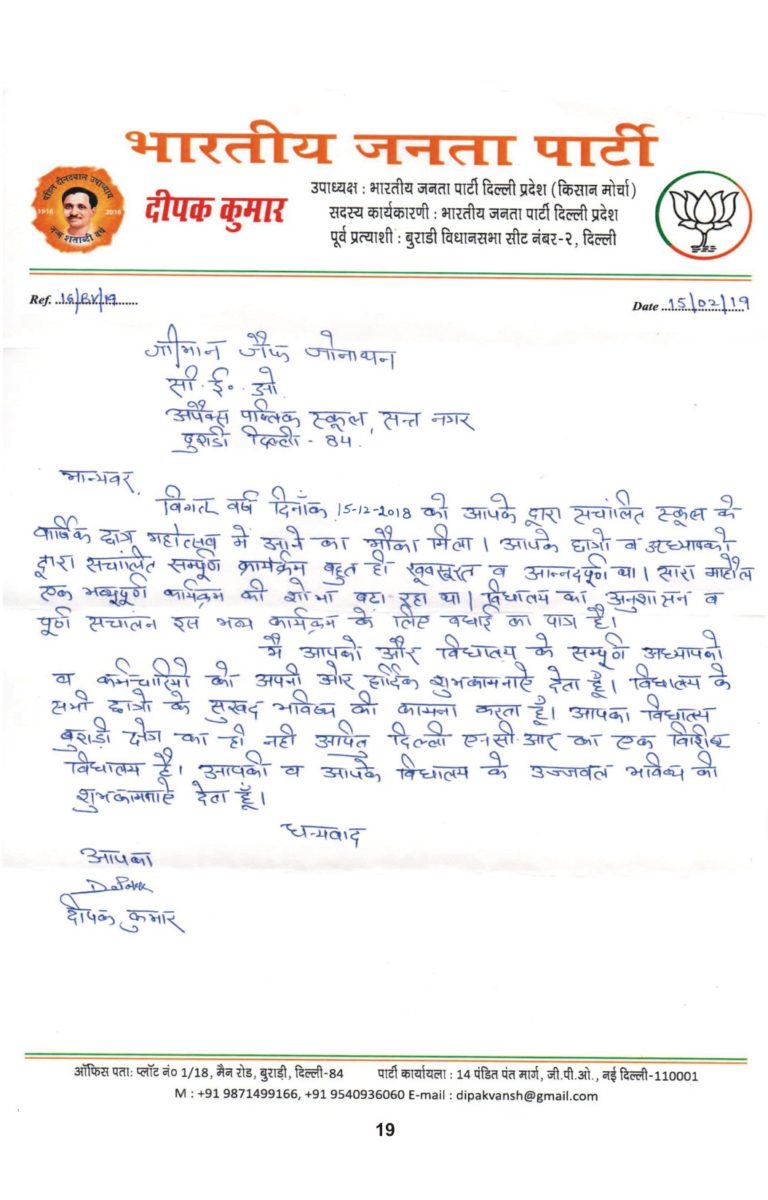 भारतीय जनता पार्टी
पंडित दीनदयाल उपाध्याय
1916 2016
जन्म शताब्दी वर्ष
दीपक कुमार
उपाध्यक्ष : भारतीय जनता पार्टी दिल्ली प्रदेश (किसान मोर्चा)
सदस्य कार्यकारणी : भारतीय जनता पार्टी दिल्ली प्रदेश
पूर्व प्रत्याशी : बुराडी विधानसभा सीट नंबर-२, दिल्ली
Ref. 16/BV/19
Date 15/02/19
श्रीमान जैफ जोनाथन
सी. ई. ओ.
अपैक्स पब्लिक स्कूल, सन्त नगर
बुराडी दिल्ली - 84.
मान्यवर,
विगत वर्ष दिनाँक 15-12-2018 को आपके द्वारा सचांलित स्कूल के
वार्षिक छात्र महोत्सव में आने का मौका मिला। आपके छात्रो व अध्यापको
द्वारा सचांलित सम्पूर्ण कार्यक्रम बहुत ही खूबसूरत व आन्नदपूर्ण था। सारा माहौल
एक भव्यपूर्ण कार्यक्रम की शोभा बढा रहा था। विधालय का अनुशासन व
पूर्ण सचालन इस भव्य कार्यक्रम के लिए बधाई का पात्र है।
मै आपको और विधालय के सम्पूर्ण अध्यापको
व कर्मचारियो को अपनी और हार्दिक शुभकामनाऐ देता हूँ। विधालय के
सभी छात्रो के सुखद भविष्य की कामना करता हूँ। आपका विधालय
बुराड़ी क्षेत्र का ही नही अपितु दिल्ली एन.सी.आर का एक विशिष्ट
विधालय है। आपकी व आपके विधालय के उज्जवल भविष्य की
शुभकामनाऐ देता हूँ।
धन्यवाद
आपका
Deepak
दीपक कुमार
ऑफिस पता: प्लॉट नं० 1/18, मैन रोड, बुराड़ी, दिल्ली-84 पार्टी कार्यायला : 14 पंडित पंत मार्ग, जी.पी.ओ., नई दिल्ली-110001
M : +91 9871499166, +91 9540936060 E-mail : dipakvansh@gmail.com
19